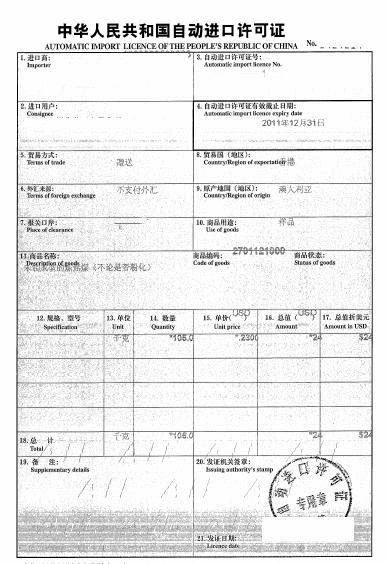 中华人民共和国自动进口许可证
AUTOMATIC IMPORT LICENCE OF THE PEOPLE'S REPUBLIC OF CHINA No.
1. 进口商:
Importer
3. 自动进口许可证号:
Automatic import licence No.
2. 进口用户:
Consignee
4. 自动进口许可证有效截止日期:
Automatic import licence expiry date
2011年12月31日
5. 贸易方式:
Terms of trade
赠送
8. 贸易国(地区):
Country/Region of exportation
香港
6. 外汇来源:
Terms of foreign exchange
不支付外汇
9. 原产地国(地区):
Country/Region of origin
澳大利亚
7. 报关口岸:
Place of clearance
10. 商品用途:
Use of goods
样品
11. 商品名称:
Description of goods
(不论是否粉化)
商品编码:
Code of goods
2701121000
商品状态:
Status of goods
12. 规格、型号
Specification
13. 单位
Unit
14. 数量
Quantity
15. 单价(USD)
Unit price
16. 总值(USD)
Amount
17. 总值折美元
Amount in USD
千克 *105.0 *.2300 *24 $24
18. 总 计
Total
千克 *105.0 *24 $24
19. 备 注:
Supplementary details
20. 发证机关签章:
Issuing authority's stamp
自动进口许可证
专用章
21. 发证日期:
Licence date